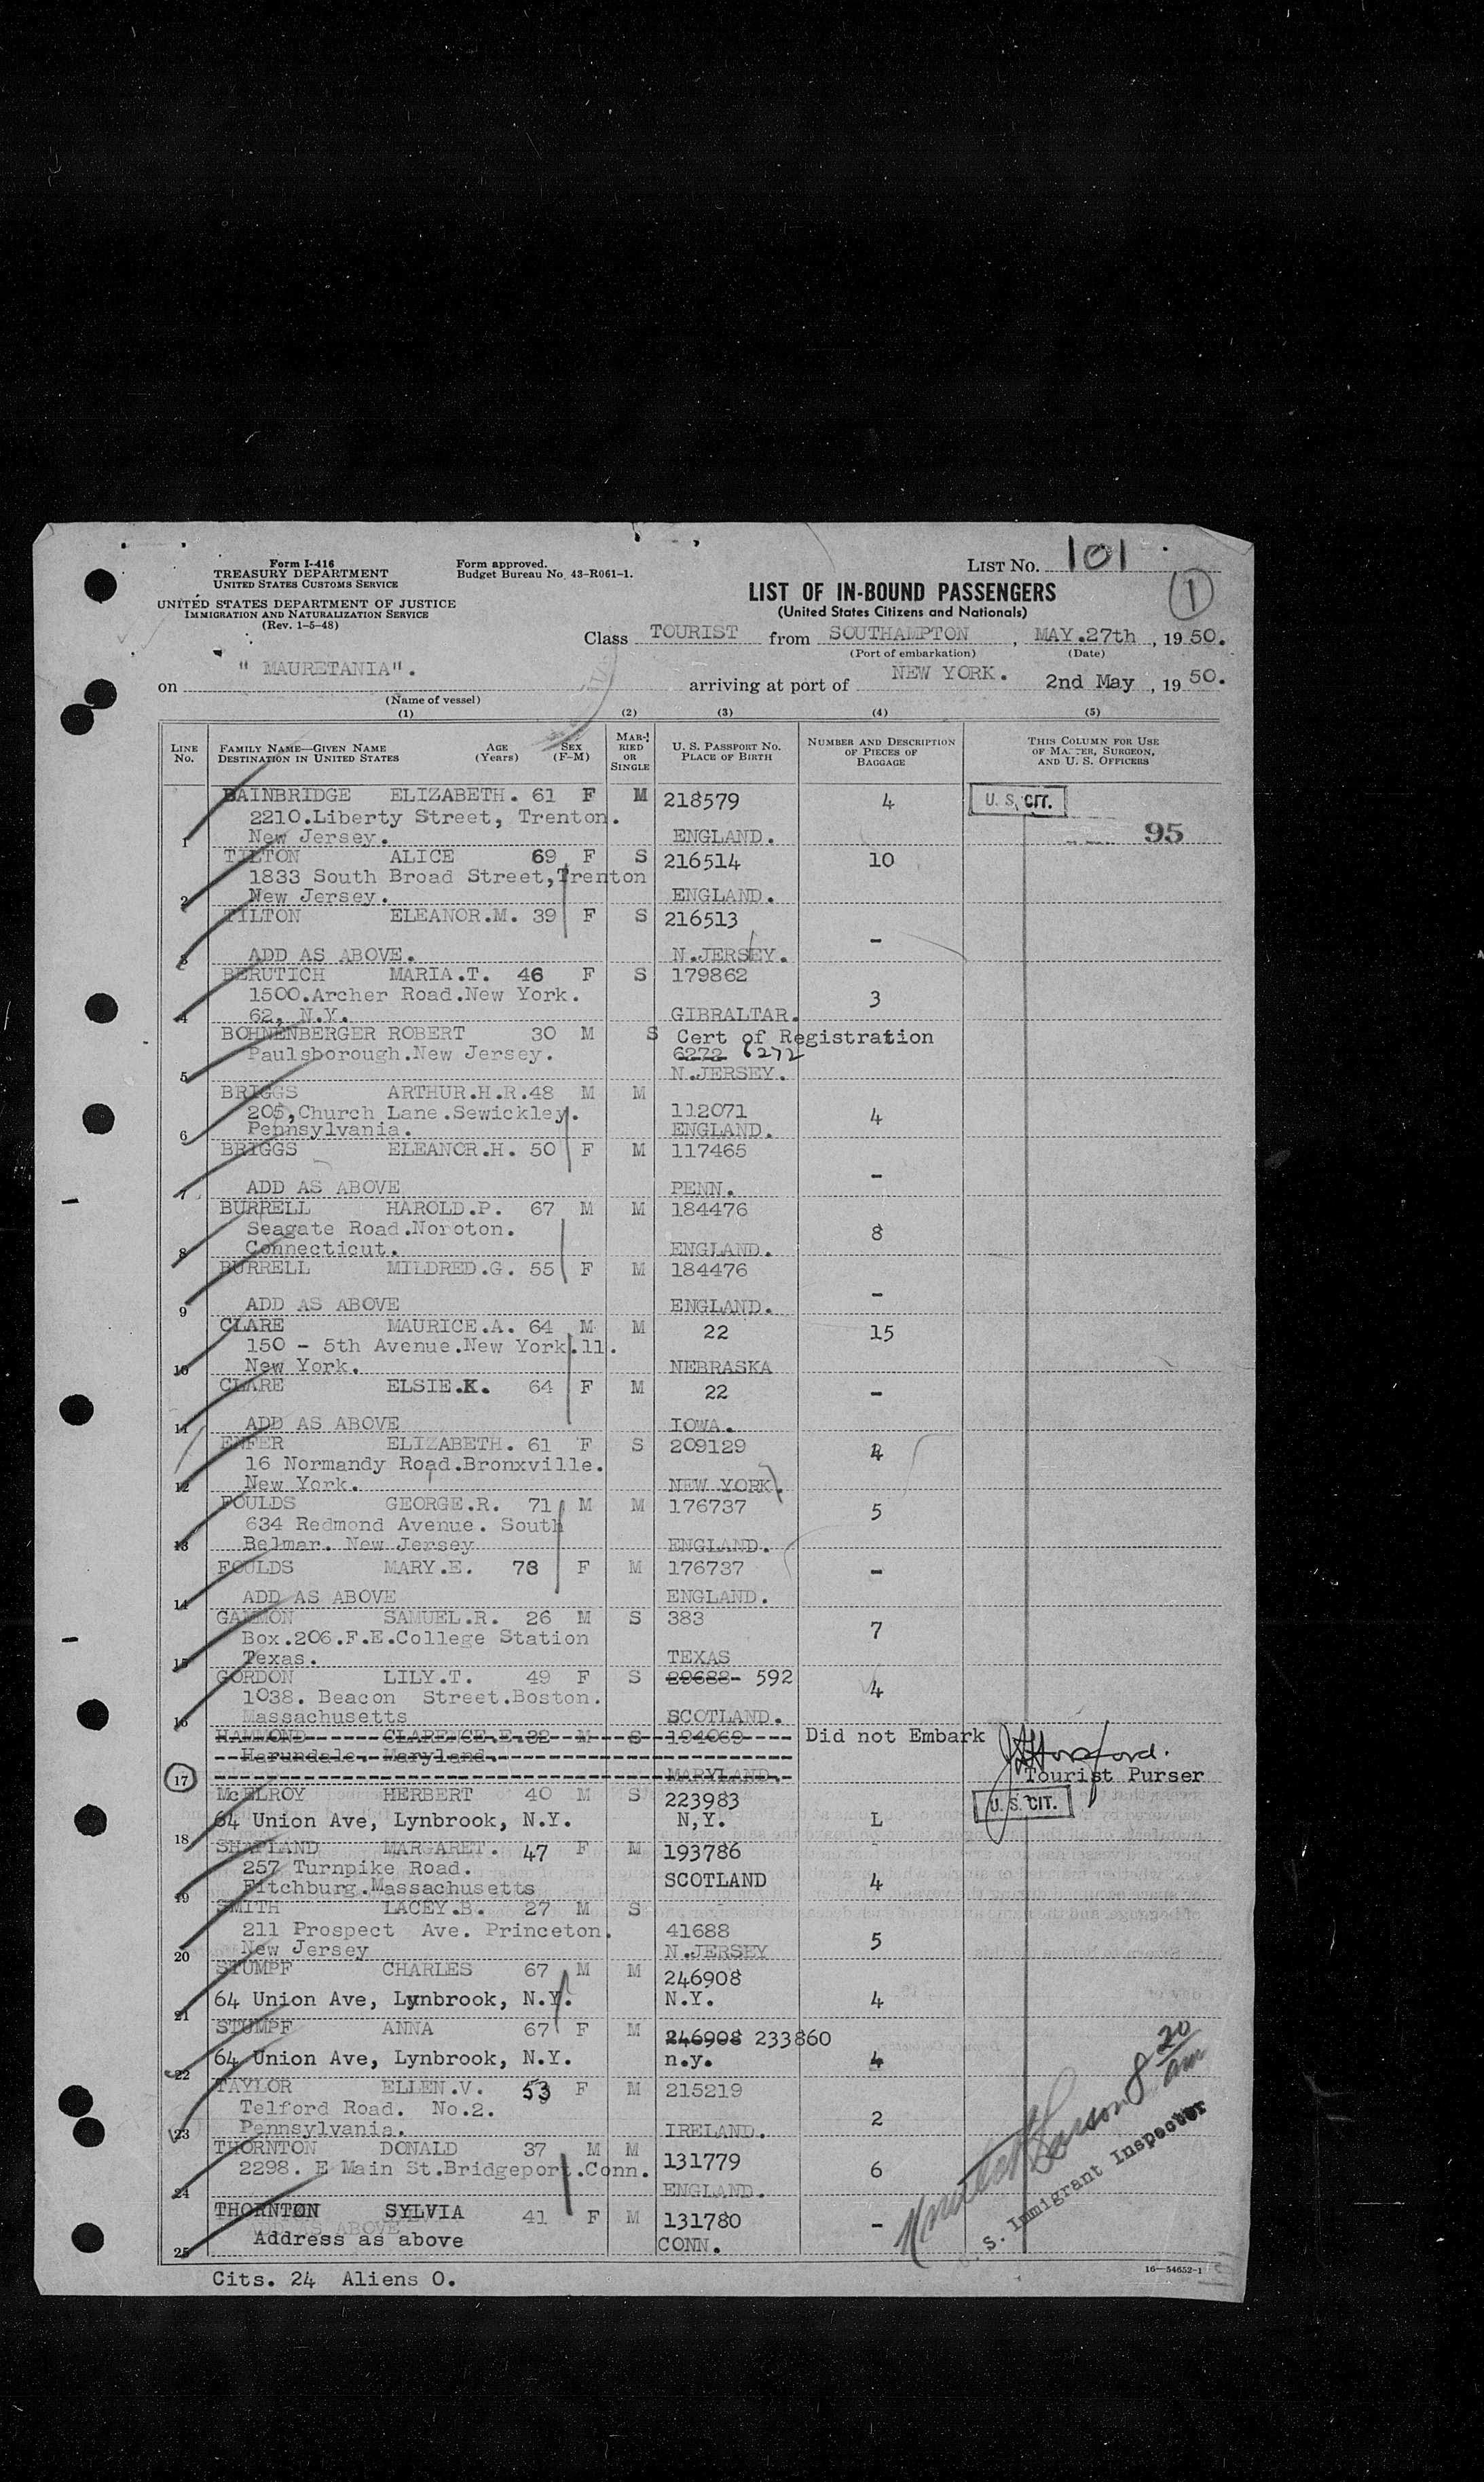 Form I-416
TREASURY DEPARTMENT
UNITED STATES CUSTOMS SERVICE
UNITED STATES DEPARTMENT OF JUSTICE
IMMIGRATION AND NATURALIZATION SERVICE
(Rev. 1-5-48)
Form approved.
Budget Bureau No. 43-R061-1.
LIST No. 101
1
LIST OF IN-BOUND PASSENGERS
(United States Citizens and Nationals)
Class TOURIST from SOUTHAMPTON, MAY.27th, 1950.
(Port of embarkation) (Date)
on "MAURETANIA". arriving at port of NEW YORK. 2nd May, 1950.
(Name of vessel)
(1) (2) (3) (4) (5)
LINE No. FAMILY NAME—GIVEN NAME DESTINATION IN UNITED STATES AGE (Years) SEX (F-M) MARRIED OR SINGLE U. S. PASSPORT NO. PLACE OF BIRTH NUMBER AND DESCRIPTION OF PIECES OF BAGGAGE THIS COLUMN FOR USE OF MASTER, SURGEON, AND U. S. OFFICERS
BAINBRIDGE ELIZABETH. 61 F M 218579 4 U. S. CIT.
2210.Liberty Street, Trenton.
1 New Jersey. ENGLAND. 95
TILTON ALICE 69 F S 216514 10
1833 South Broad Street,Trenton
2 New Jersey. ENGLAND.
TILTON ELEANOR.M. 39 F S 216513 -
3 ADD AS ABOVE. N.JERSEY.
BERUTICH MARIA.T. 46 F S 179862
1500.Archer Road.New York. 3
4 62, N.Y. GIBRALTAR.
BOHNENBERGER ROBERT 30 M S Cert of Registration
Paulsborough.New Jersey. 6272 6272
5 N.JERSEY.
BRIGGS ARTHUR.H.R.48 M M
205,Church Lane.Sewickley. 112071 4
6 Pennsylvania. ENGLAND.
BRIGGS ELEANOR.H. 50 F M 117465 -
7 ADD AS ABOVE PENN.
BURRELL HAROLD.P. 67 M M 184476
Seagate Road.Noroton. 8
8 Connecticut. ENGLAND.
BURRELL MILDRED.G. 55 F M 184476 -
9 ADD AS ABOVE ENGLAND.
CLARE MAURICE.A. 64 M M 22 15
150 - 5th Avenue.New York.11.
10 New York. NEBRASKA
CLARE ELSIE.K. 64 F M 22 -
11 ADD AS ABOVE IOWA.
ENFER ELIZABETH. 61 F S 209129 4
16 Normandy Road.Bronxville.
12 New York. NEW YORK.
FOULDS GEORGE.R. 71 M M 176737 5
634 Redmond Avenue. South
13 Belmar. New Jersey ENGLAND.
FOULDS MARY.E. 73 F M 176737 -
14 ADD AS ABOVE ENGLAND.
GAMMON SAMUEL.R. 26 M S 383 7
Box.206.F.E.College Station
15 Texas. TEXAS
GORDON LILY.T. 49 F S 29688- 592 4
1038. Beacon Street.Boston.
16 Massachusetts SCOTLAND.
HAMMOND CLARENCE.E.32 M S 194069 Did not Embark
Harundale. Maryland.
17 MARYLAND. Tourist Purser
McELROY HERBERT 40 M S 223983 U. S. CIT.
64 Union Ave, Lynbrook, N.Y. N,Y. L
18
SHAPLAND MARGARET. 47 F M 193786
257 Turnpike Road. SCOTLAND 4
19 Fitchburg.Massachusetts
SMITH LACEY.B. 27 M S
211 Prospect Ave. Princeton. 41688 5
20 New Jersey N.JERSEY
STUMPF CHARLES 67 M M 246908
21 64 Union Ave, Lynbrook, N.Y. N.Y. 4
STUMPF ANNA 67 F M 246908 233860
22 64 Union Ave, Lynbrook, N.Y. n.y. 4
TAYLOR ELLEN.V. 53 F M 215219
Telford Road. No.2. 2
23 Pennsylvania. IRELAND.
THORNTON DONALD 37 M M 131779 6
2298. E Main St.Bridgeport.Conn.
24 ENGLAND.
THORNTON SYLVIA 41 F M 131780 -
25 Address as above CONN.
8 20 am
U. S. Immigrant Inspector
Cits. 24 Aliens 0.
16—54652-1